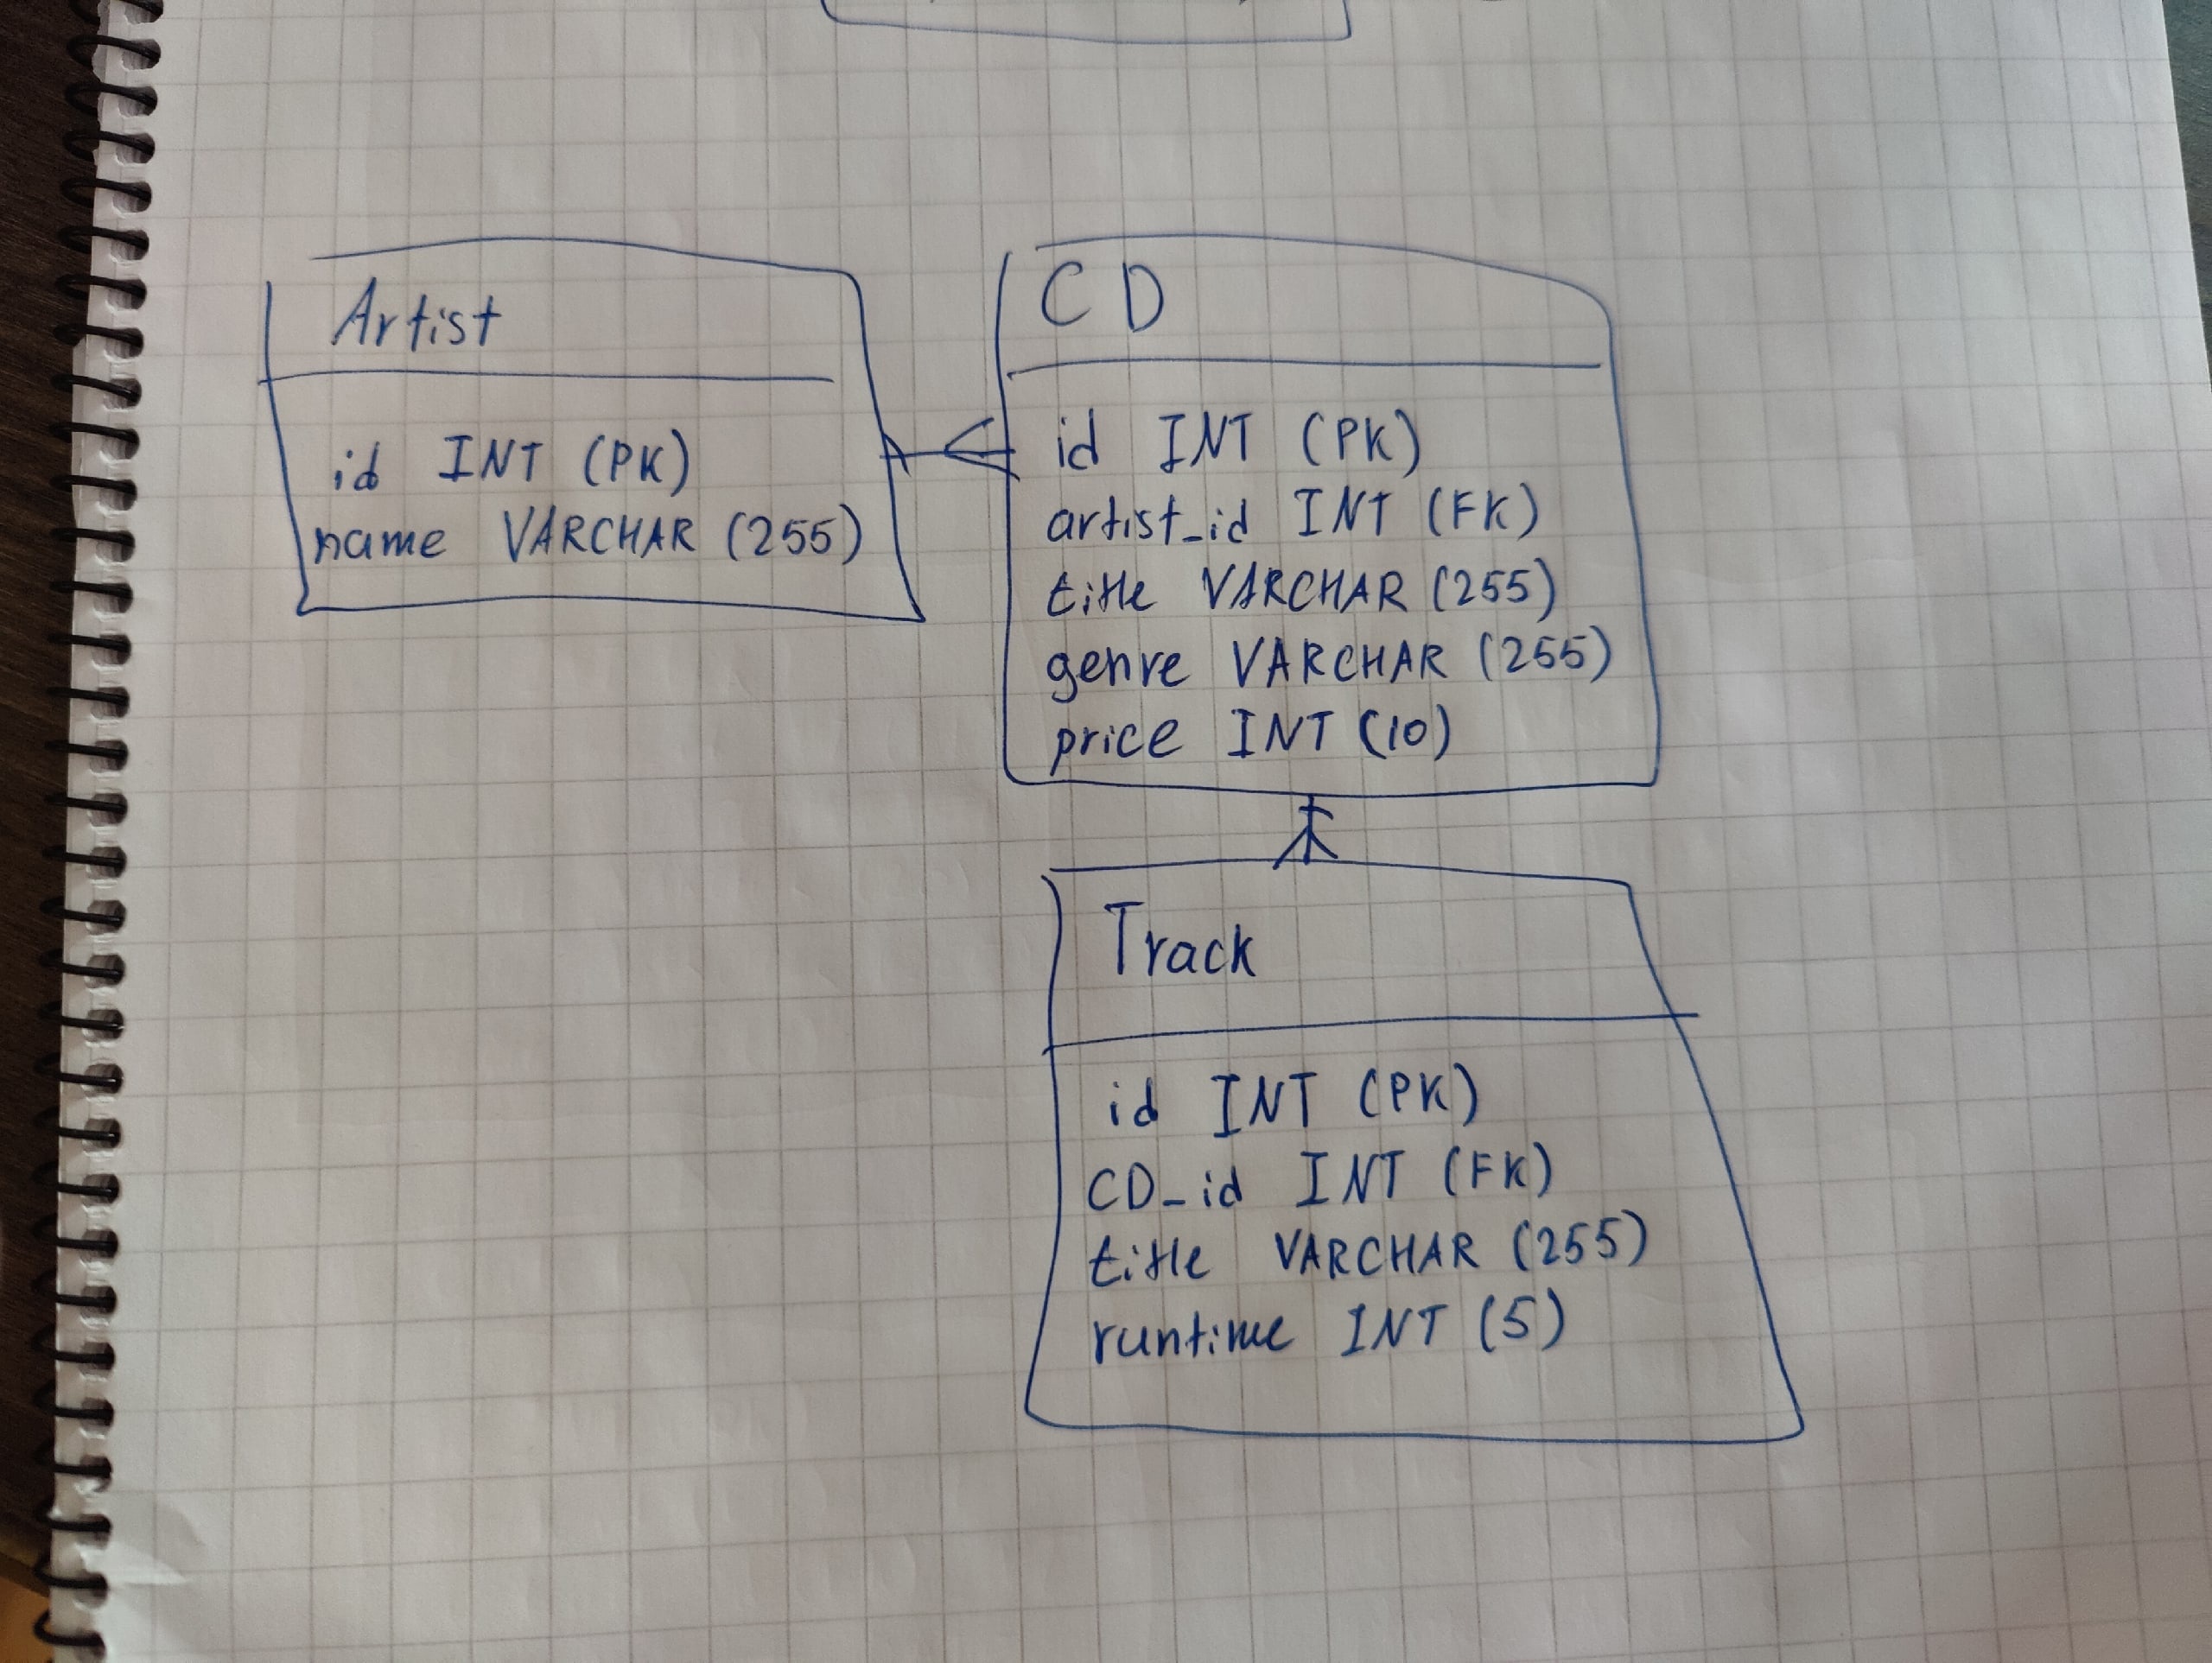 Artist
id INT (PK)
name VARCHAR (255)
CD
id INT (PK)
artist_id INT (FK)
title VARCHAR (255)
genre VARCHAR (255)
price INT (10)
Track
id INT (PK)
CD_id INT (FK)
title VARCHAR (255)
runtime INT (5)